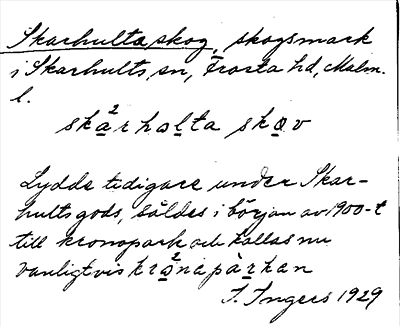 Skarhulta skog, skogsmark
i Skarhults sn, Frosta hd, Malm.
l.
skạ²rhọḷta skọv
Lydde tidigare under Skar-
hults gods, såldes i början av 1900-t
till kronopark och kallas nu
vanligtvis krọ²napàṛkan
I. Ingers 1929